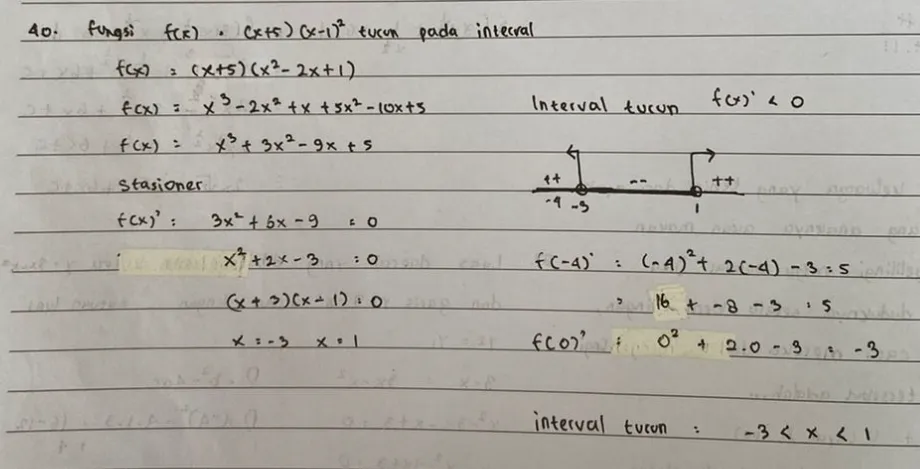 40. Fungsi f(x) = (x+5)(x-1)² turun pada interval
f(x) = (x+5)(x²-2x+1)
f(x) = x³-2x²+x+5x²-10x+5
f(x) = x³+3x²-9x+5
Stasioner
f(x)' = 3x²+6x-9 = 0
x²+2x-3 = 0
(x+3)(x-1) = 0
x = -3 x = 1
Interval turun f(x)' < 0
++ -- ++
-4 -3 1
f(-4)' = (-4)²+ 2(-4) - 3 = 5
= 16 + -8 - 3 = 5
f(0)' = 0² + 2.0 - 3 = -3
interval turun = -3 < x < 1